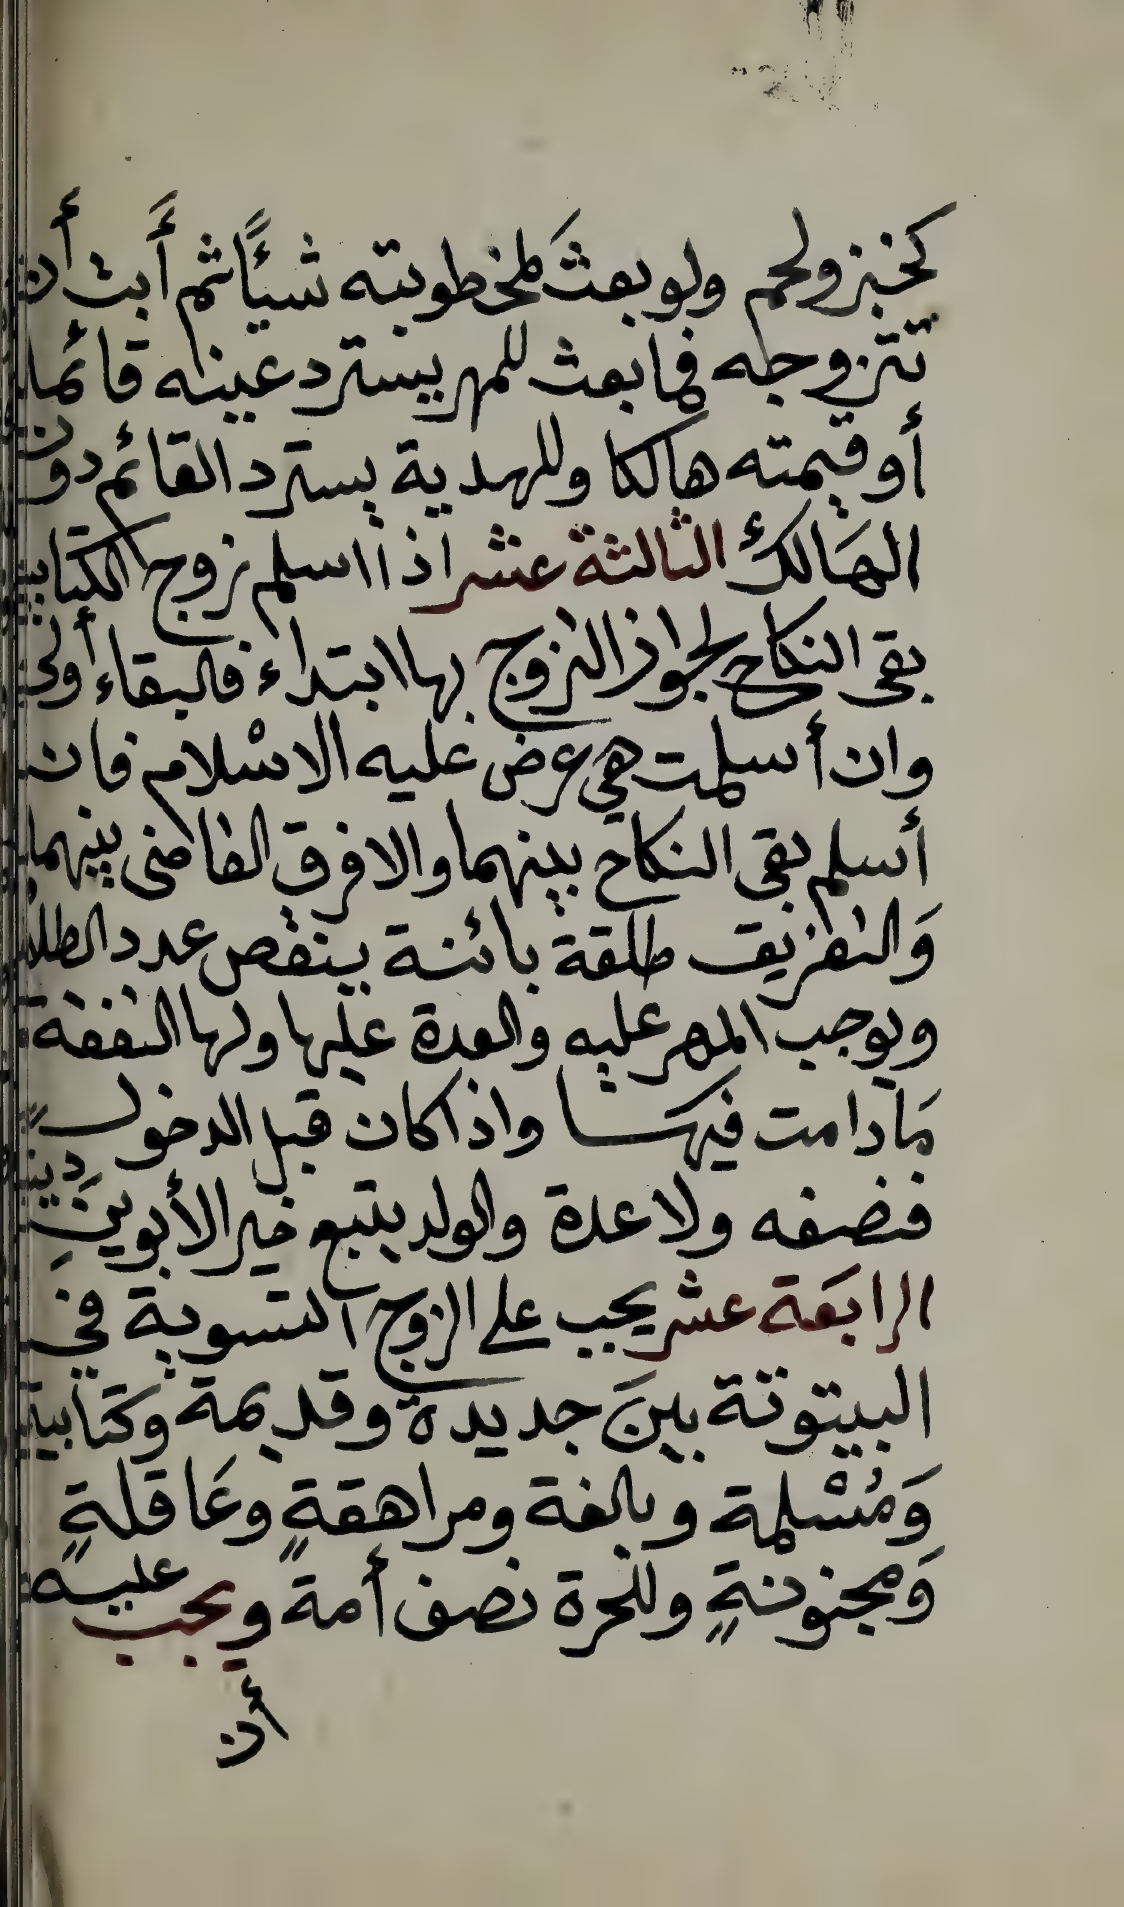 كخبز ولحم ولو بعثَ لمخطوبته شيئًا ثم أَبت أَن
تتزوجه فما بعث للمهر يسترد عينه قائما
أو قيمته هالكا وللهدية يسترد القائم دون
الهَالك الثالثة عشر اذا اسلم زوج الكتابية
بقى النكاح لجواز التزوج بها ابتداء فالبقاء أولى
وان أسلمت هي عرض عليه الاسْلام فان
أسلم بقى النكاح بينهما والا فرق القاضى بينهما
وَالتفريق طلقة بائنة ينقص عدد الطلاق
ويوجب المهر عليه والعدة عليها ولها النفقة
مَا دامت فيها واذا كان قبل الدخول
فنصفه ولا عدة والولد يتبع خير الأبوينَ دينا
الرابعَة عشر يجب على الزوج التسوية في
البيتوتة بينَ جديدة وقديمة وكتابية
وَمُسْلمة وبالغة ومراهقةٍ وعَاقلةٍ
وَمجنونةٍ وللحرة نصف أمة ويجب عليه
أن